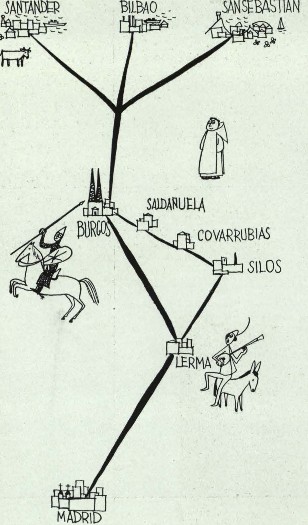 SANTANDER
BILBAO
SAN SEBASTIAN
BURGOS
SALDAÑUELA
COVARRUBIAS
SILOS
LERMA
MADRID